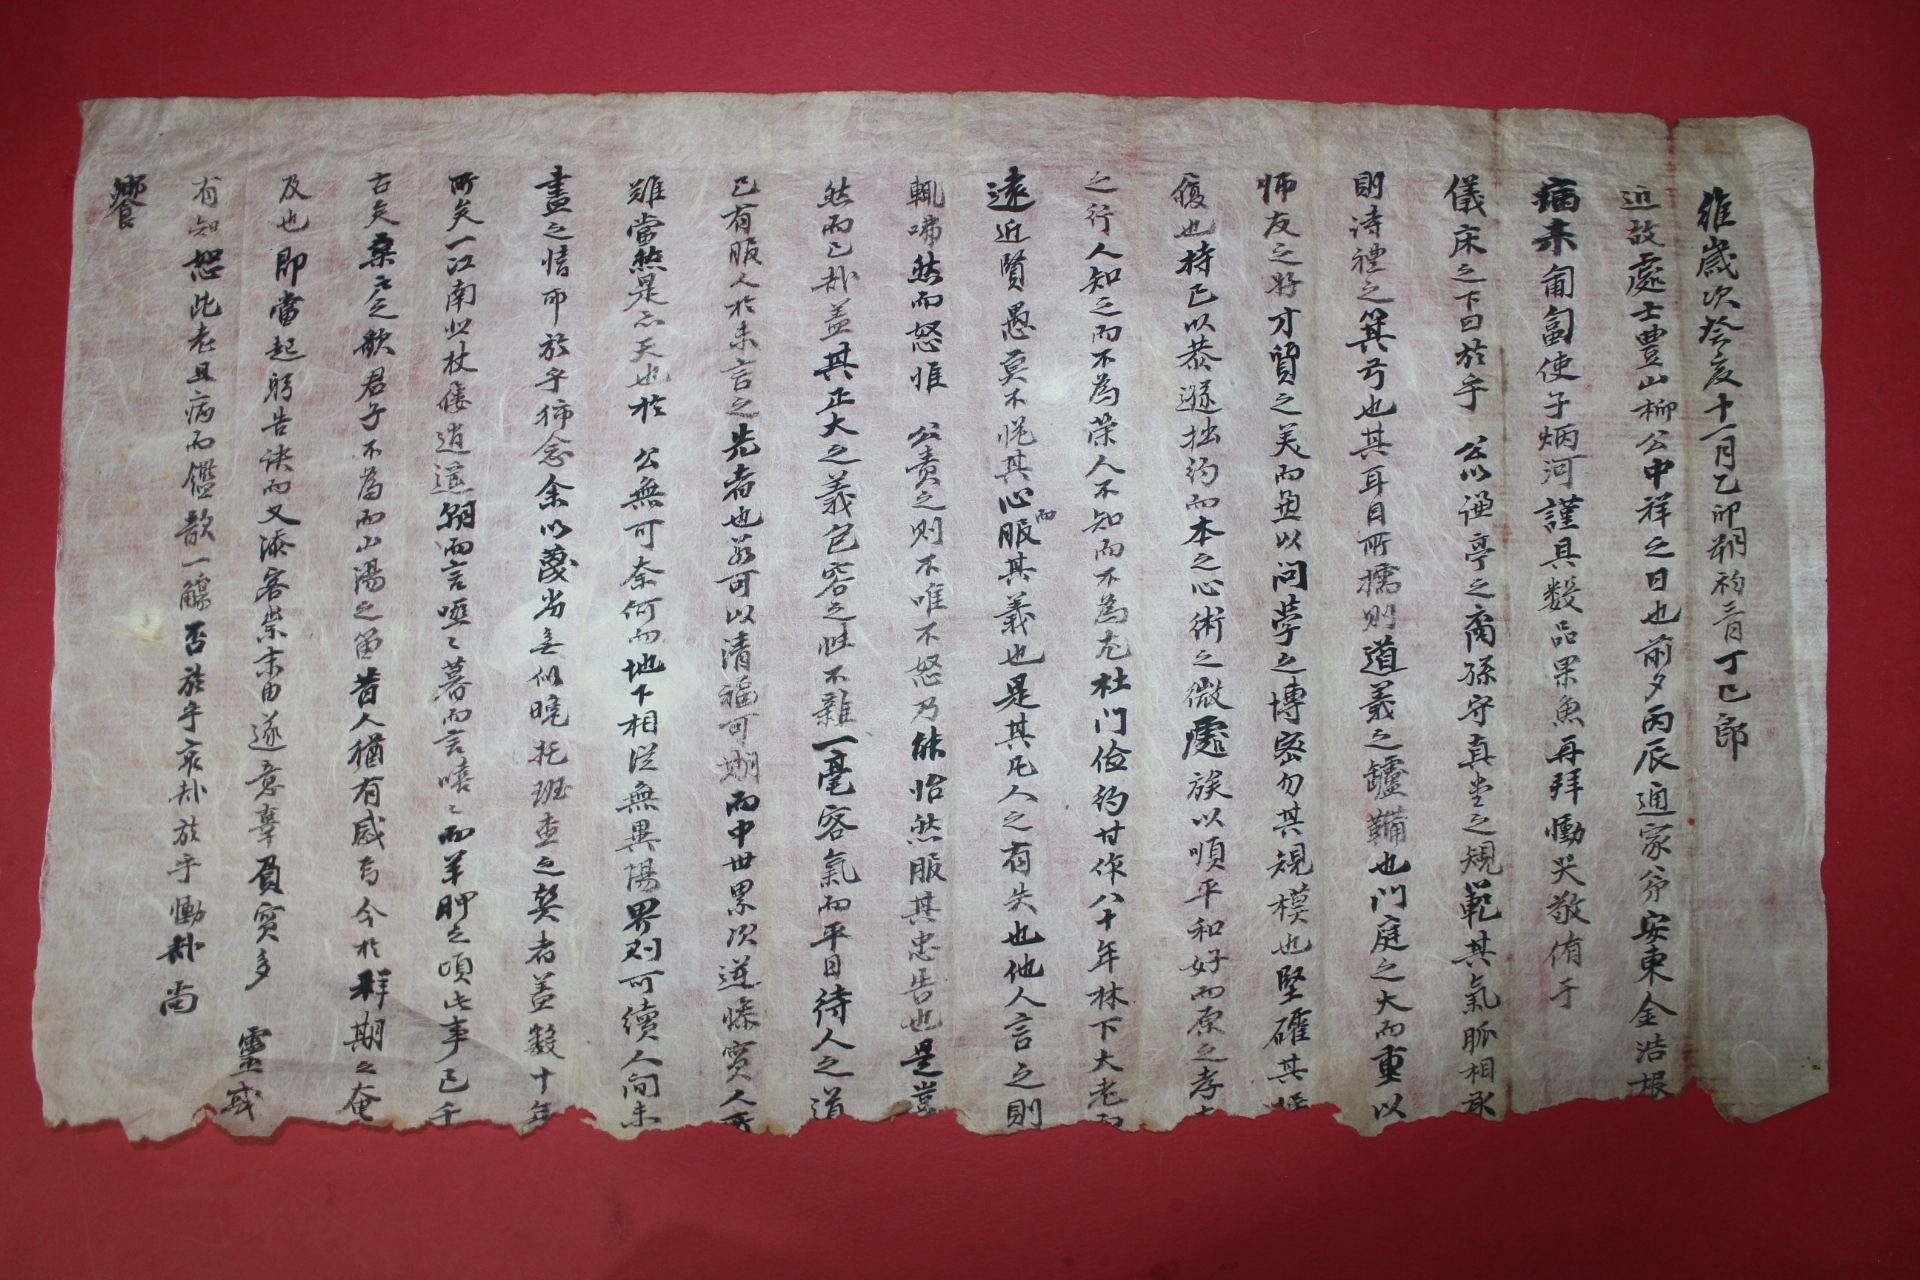 維歲次癸亥十一月乙卯朔初三日丁巳卽
近故處士豊山柳公中祥之日也前夕丙辰通家弟安東金浩根
病未匍匐使子炳河謹具數品果魚再拜慟哭敬侑于
儀床之下曰於乎 公以謙亭之裔孫守眞堂之規範其氣脈相承
則詩禮之箕弓也其耳目所擩則道義之鑪鞴也門庭之大而重以
師友之好才質之美而重以問學之博密勿其規模也堅確其
履也持己以恭遜拙約而本之心術之微處族以順平和好而原之孝
之行人知之而不為榮人不知而不為尤杜門儉約甘作八十年林下大老而
遠近賢愚莫不悅其心而服其義也是其凡人之有失也他人言之則
輒咈然而怒惟 公責之則不唯不怒乃能怡然服其忠告也是豈
然而已哉蓋其正大之義包容之性不雜一毫客氣而平日待人之道
已有服人於未言之先者也若可以淸福可期而中世累次逆慘實人所
雖當然是亦天也於 公無可奈何而地下相從無異陽界則可續人間未
盡之情而於乎痛念余以蔑劣妄似晚托班查之契者蓋數十年
所矣一江南北杖屨逍遙朝而言啞〻暮而言嘻〻而羊胛之頃此事已千
古矣桑戶之歌君子不為而山陽之笛昔人猶有感焉今於祥期之奄
及也卽當起躬告訣而又添客祟末由遂意辜負實多 靈或
有知恕此老且病而鑑歆一觴否於乎哀哉於乎慟哉尙
饗